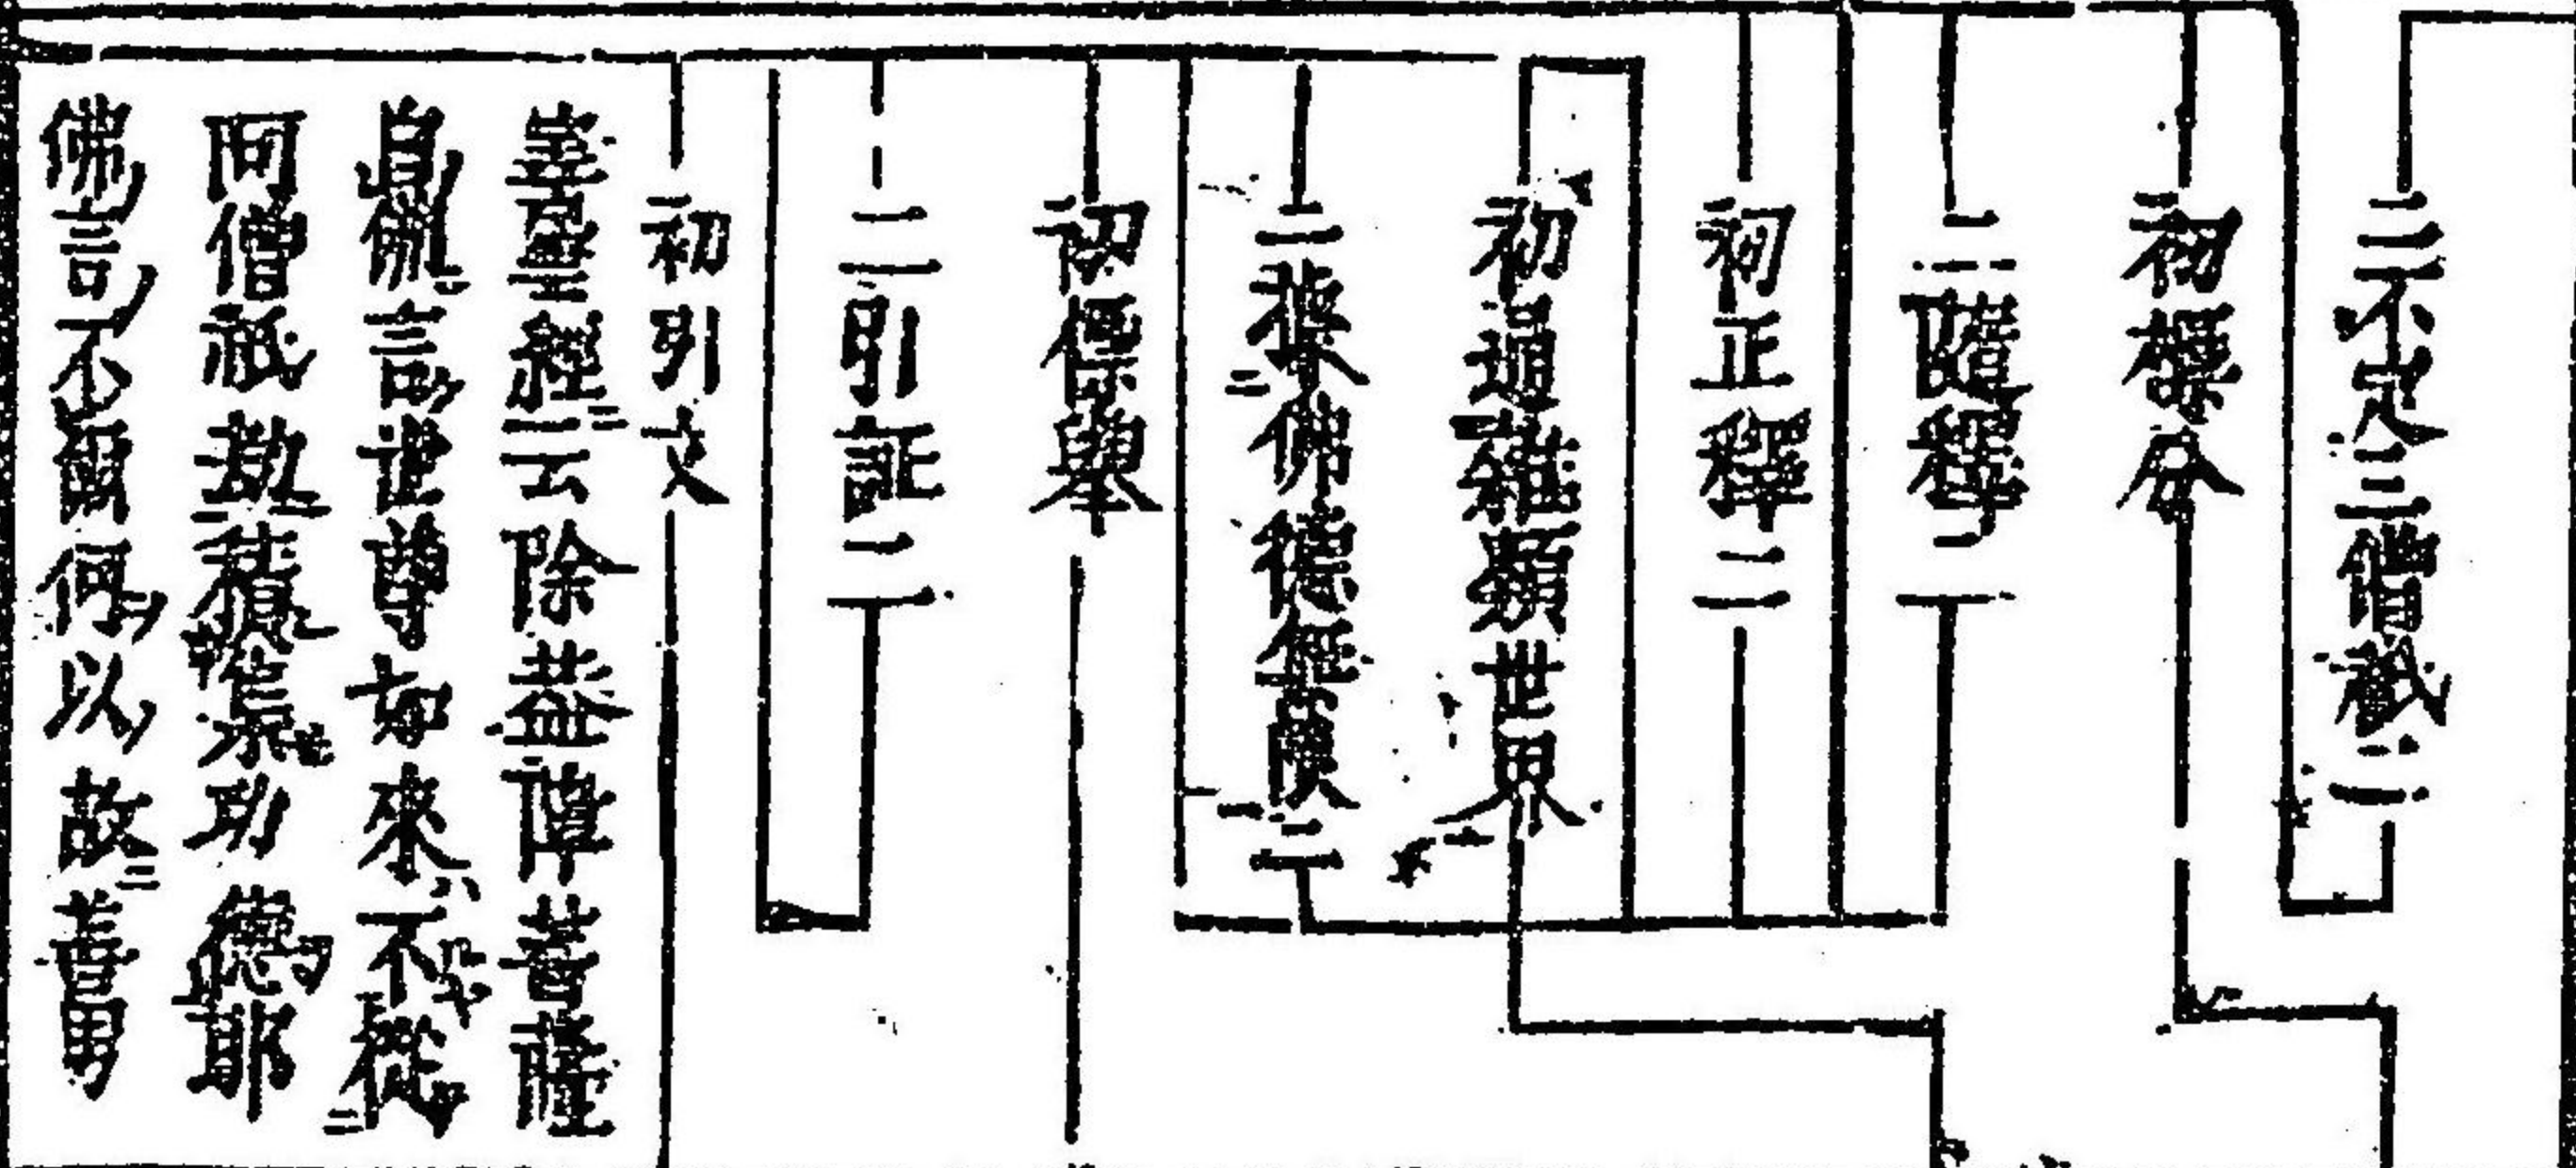 二不定三僧祇二
初標分
二隨釋二
初正釋二
初過雜類世界
二裝佛德無
初標舉
二引証二
初引文
經云除蓋障菩薩
白佛言世尊如來不從
阿僧祇劫積集功德耶
佛言不爾何以故善男